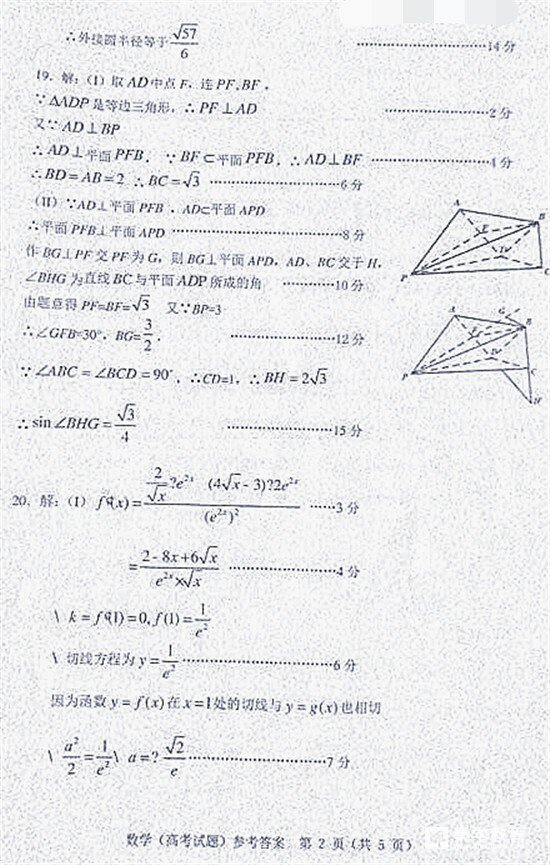 ∴外接圆半径等于√57/6 ………………14分
19．解：(I) 取AD中点F，连PF,BF，
∵ΔADP是等边三角形，∴PF⊥AD ………………2分
又∵AD⊥BP
∴AD⊥平面PFB，∵BF⊂平面PFB，∴AD⊥BF ………………4分
∴BD=AB=2 ∴BC=√3 ………………6分
(II) ∵AD⊥平面PFB，AD⊂平面APD
∴平面PFB⊥平面APD ………………8分
作BG⊥PF交PF为G，则BG⊥平面APD，AD、BC交于H，
∠BHG为直线BC与平面ADP所成的角 …………10分
由题意得PF=BF=√3 又∵BP=3
∴∠GFB=30°，BG=3/2， ………………12分
∵∠ABC=∠BCD=90°，∴CD=1，∴BH=2√3
∴sin∠BHG=√3/4 ………………15分
A
B
P
C
F
D
A
G
B
F
D
P
C
H
20．解：(I) f¢(x)=(2/√x ?e^{2x} (4√x-3)?2e^{2x})/(e^{2x})^2 ……3分
=(2-8x+6√x)/(e^{2x}×√x) ………………4分
\ k=f¢(1)=0,f(1)=1/e^2
\ 切线方程为y=1/e^2 ………………6分
因为函数y=f(x)在x=1处的切线与y=g(x)也相切
\ a^2/2=1/e^2 \ a=? √2/e ………………7分
数学（高考试题）参考答案 第2页（共5页）